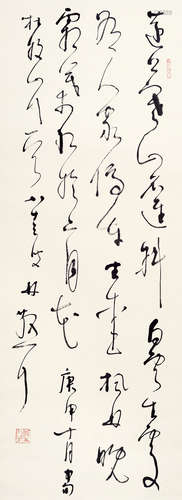 遠上寒山石逕斜白雲生處
有人家停車坐愛楓林晚
霜葉紅於二月花庚申十月書
杜牧山行一首林散耳